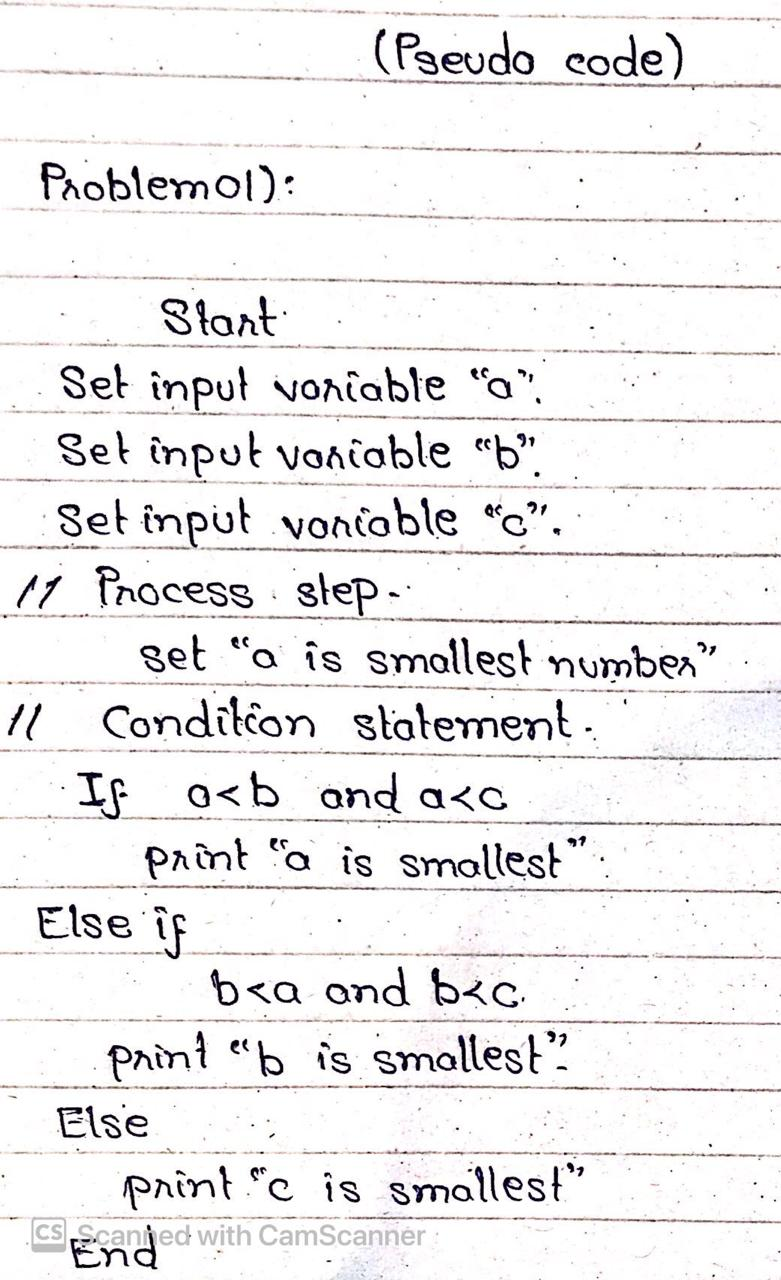 (Pseudo code)
Problem01):
Start
Set input variable "a".
Set input variable "b".
Set input variable "c".
// Process step.
set "a is smallest number"
// Condition statement.
If a<b and a<c
print "a is smallest".
Else if
b<a and b<c.
print "b is smallest".
Else
print "c is smallest"
CS Scanned with CamScanner
End